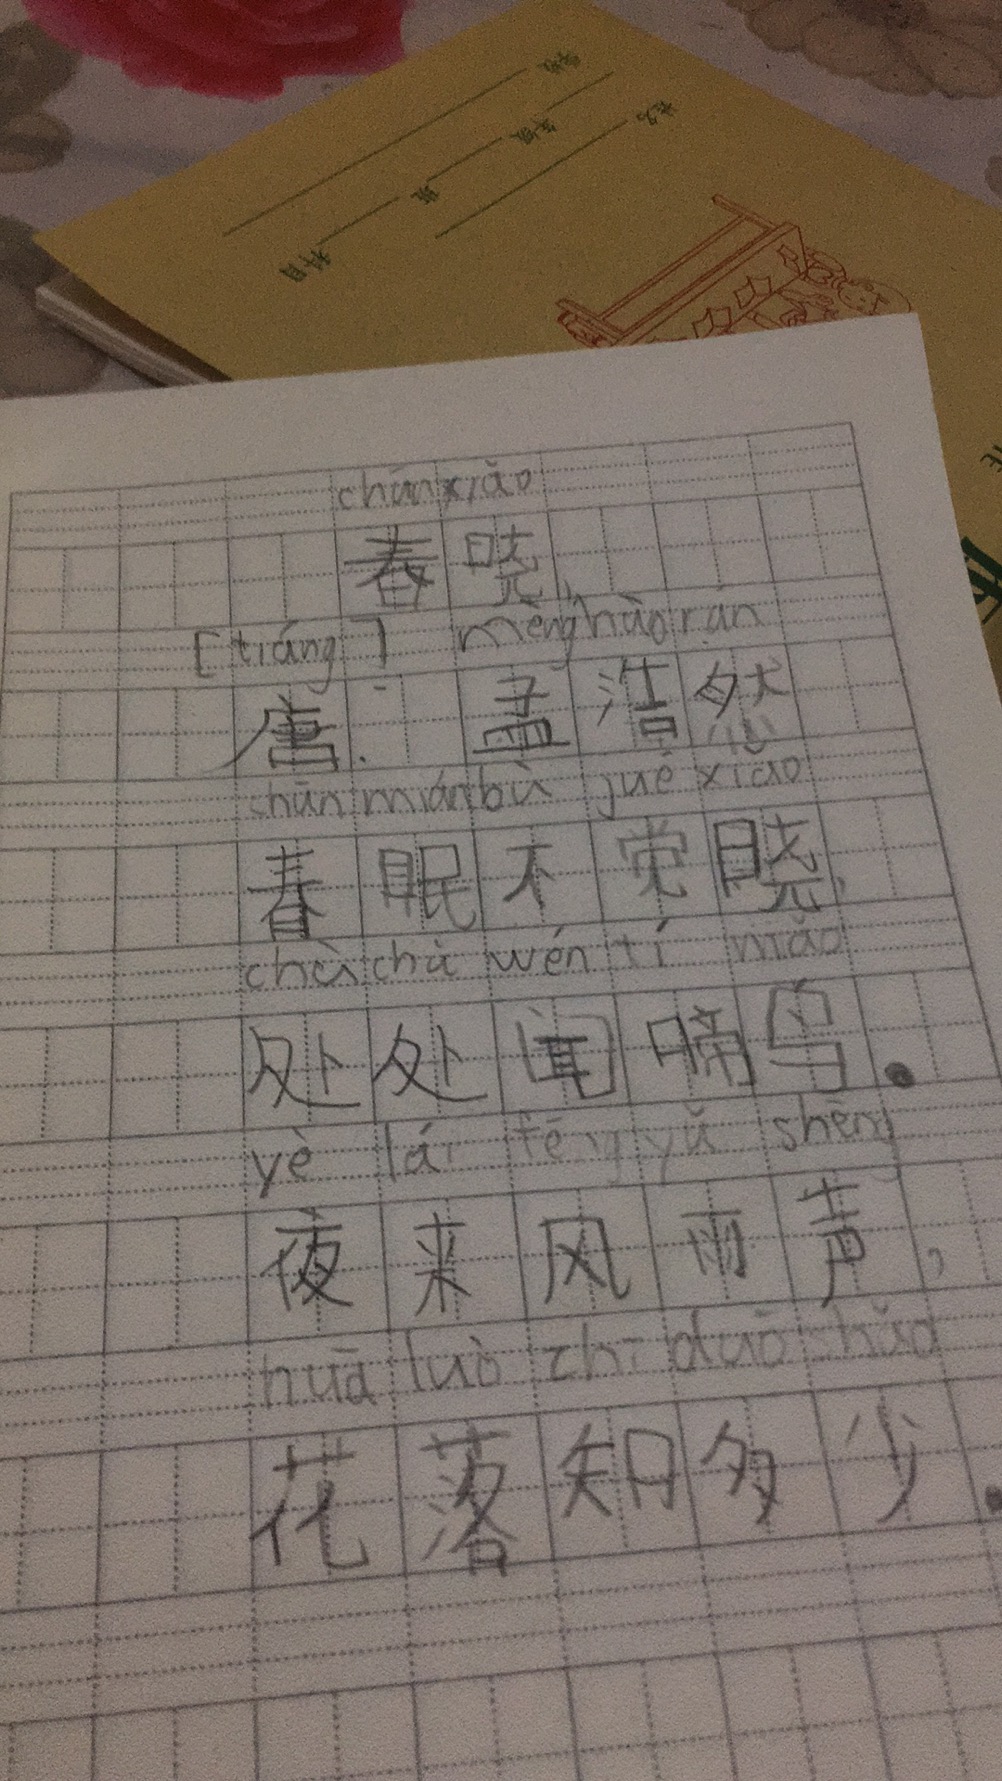 学校
年级
班
科目
姓名
chūn xiǎo
春晓
[tiáng] mèng hào rán
唐. 孟浩然
chūn mián bù jué xiǎo
春眠不觉晓,
chù chù wén tí niǎo
处处闻啼鸟.
yè lái fēng yǔ shēng
夜来风雨声,
huā luò zhī duō shǎo
花落知多少.